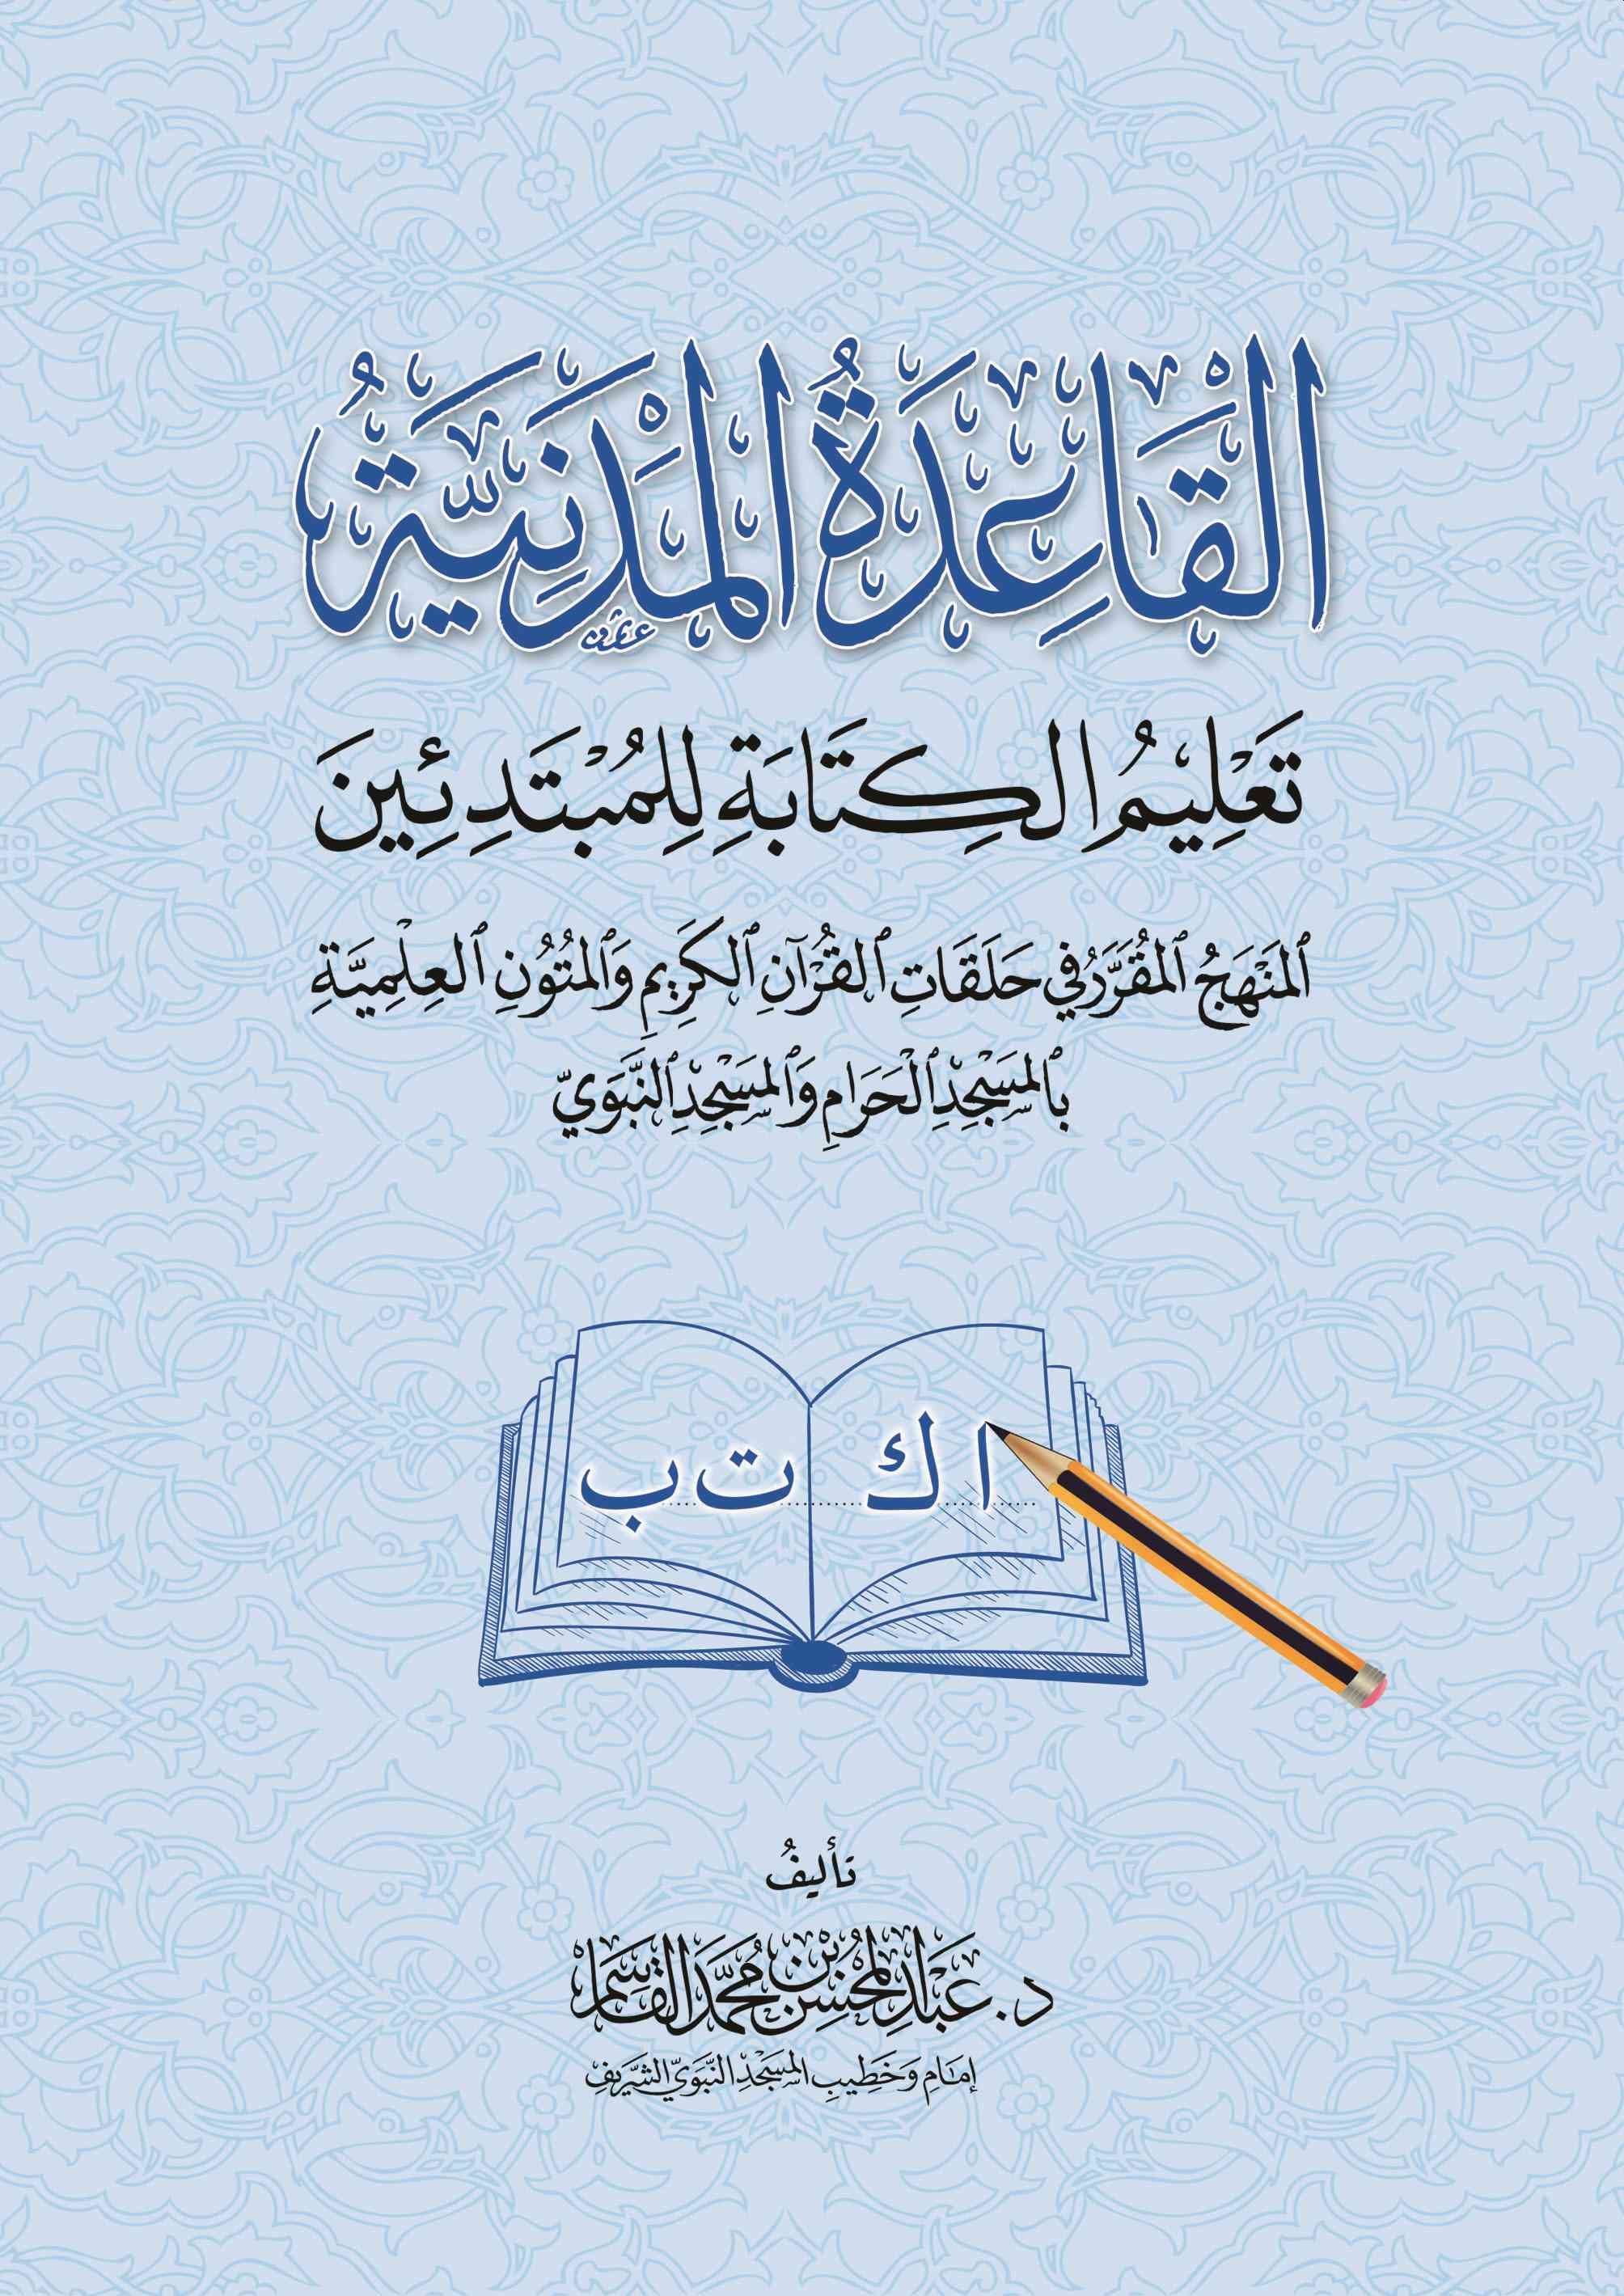 القَاعِدَةُ المَدَنِيَّةُ
تَعْلِيمُ الكِتَابَةِ لِلْمُبْتَدِئِينَ
ٱلمَنْهَجُ ٱلمُقَرَّرُ فِي حَلَقَاتِ ٱلقُرْآنِ ٱلكَرِيمِ وَٱلمُتُونِ ٱلعِلْمِيَّةِ
بِٱلمَسْجِدِ ٱلْحَرَامِ وَٱلمَسْجِدِ ٱلنَّبَوِيّ
ا ك ت ب
تأليفُ
د. عَبْدِ المُحْسِن بْن مُحَمَّد القَاسِم
إمَامِ وَخَطِيبِ المَسْجِدِ النَّبَوِيّ الشَّرِيفِ